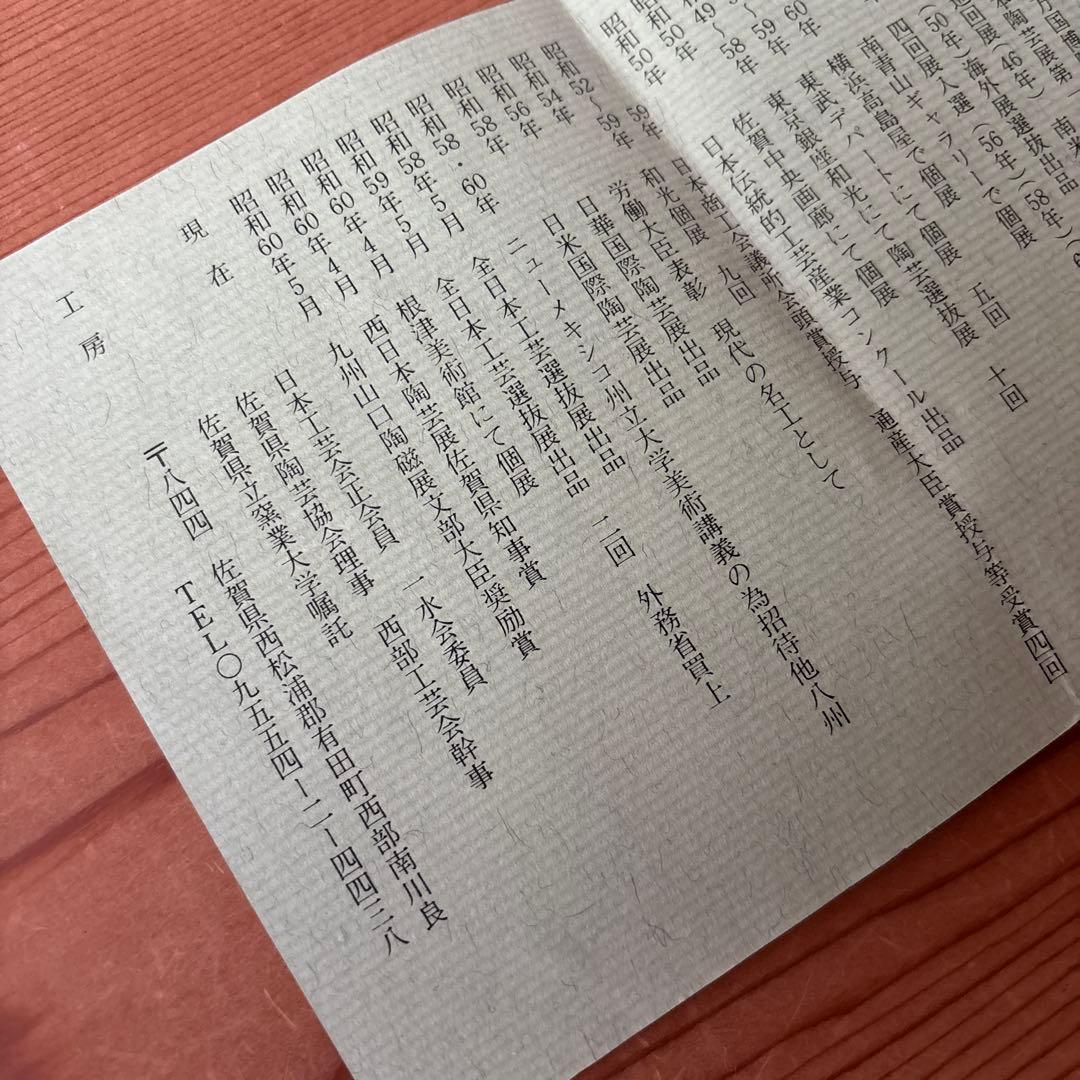 万国博
陶芸展第
巡回展(46年)海外展選抜出品
(50年)入選(56年)(58年)
四回展
南青山ギャラリーで個展 五回
横浜高島屋で個展
東武デパートにて陶芸選抜展 十回
東京銀座和光にて個展
佐賀中央画廊にて個展
日本伝統的工芸産業コンクール出品 通産大臣賞授与等受賞四回
日本商工会議所会頭賞授与
昭和52〜59年 和光個展 九回
昭和54年 労働大臣表彰 現代の名工として
昭和56年 日華国際陶芸展出品
昭和58年 日米国際陶芸展出品
昭和58・60年 ニューメキシコ州立大学美術講義の為招待他八州
昭和58年5月 全日本工芸選抜展出品 二回 外務省買上
昭和59年5月 全日本工芸選抜展出品
昭和60年4月 根津美術館にて個展
昭和60年4月 西日本陶芸展佐賀県知事賞
昭和60年5月 九州山口陶磁展文部大臣奨励賞
現在 日本工芸会正会員 一水会委員
佐賀県陶芸協会理事 西部工芸会幹事
佐賀県立窯業大学嘱託
工房 〒八四四 佐賀県西松浦郡有田町西部南川良
TEL〇九五五四ー二ー四四三八